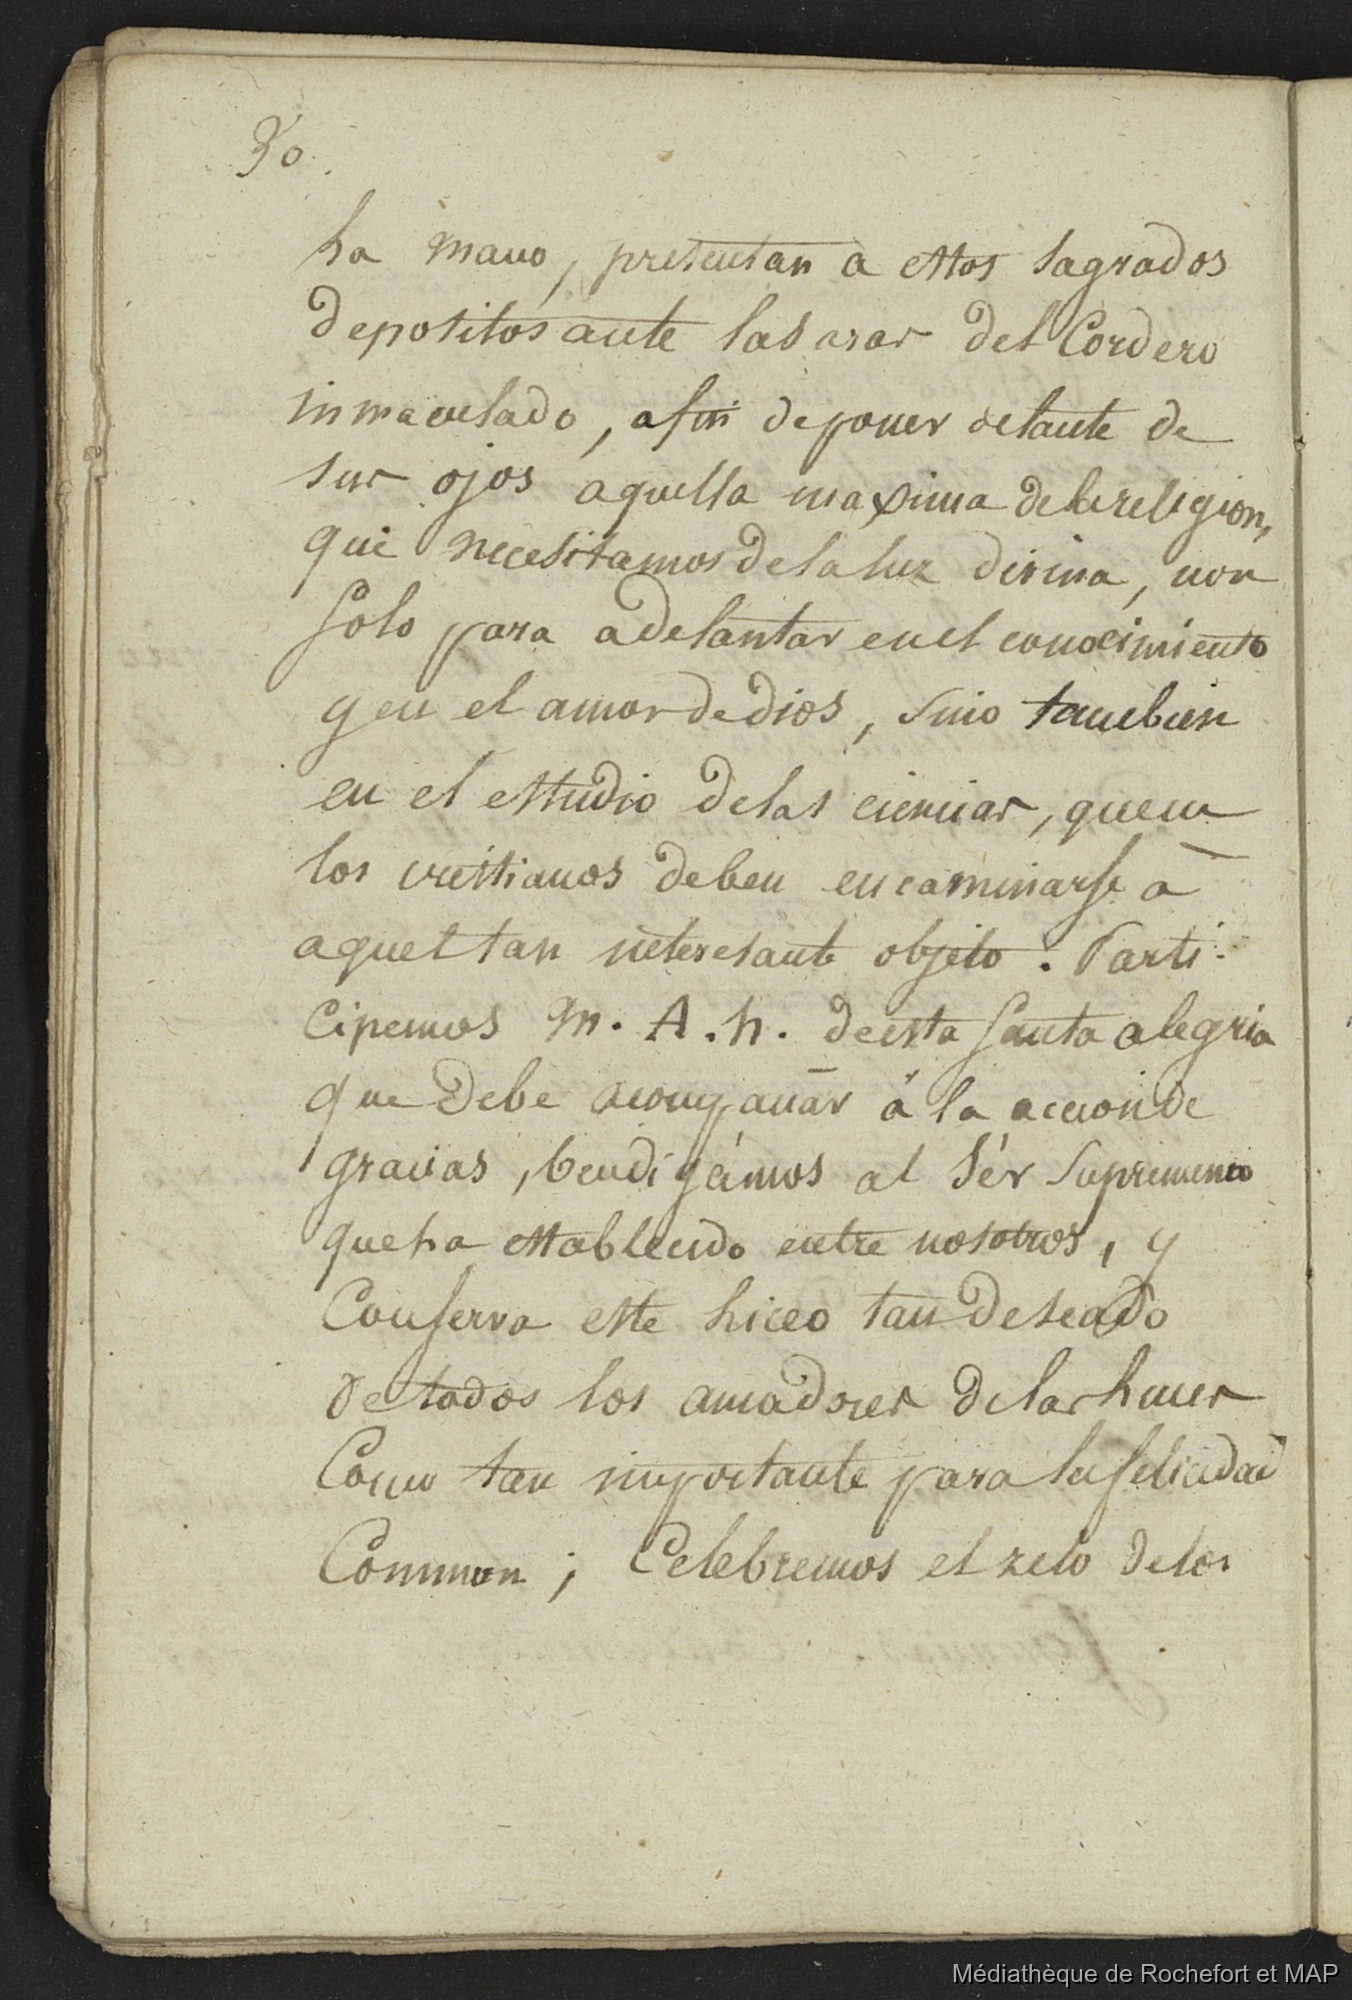 30.
ha mano, presentan à estos sagrados
depositos ante las aras del Cordero
inmaculado, a fin de poner delante de
sus ojos aquella maxima de la religion,
que necesitamos de la luz divina, non
solo para adelantar en el conocimiento
y en el amor de dios, sino tambien
en el estudio de las ciencias, que en
los cristianos deben encaminarse à
aquel tan interesante objeto. Parti-
cipemos M. A. h. de esta santa alegria
que debe acompañar á la accion de
gracias, bendigámos al Sér Supremeno
que ha establecido entre nosotros, y
Conserva este liceo tan deseado
de todos los amadores de las luces
Como tan importante para la felicidad
Common; Celebremos el zelo de los
Médiathèque de Rochefort et MAP